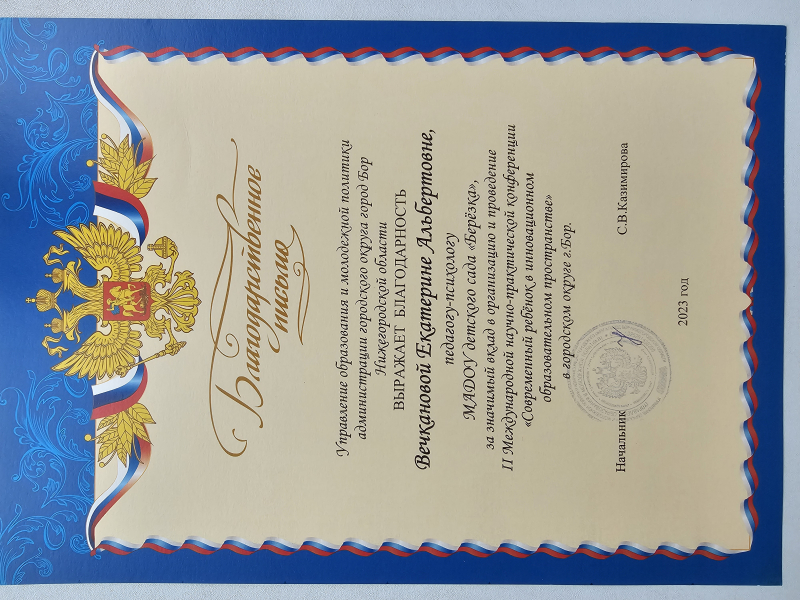 Благодарственное
письмо
Управление образования и молодежной политики
администрации городского округа город Бор
Нижегородской области
ВЫРАЖАЕТ БЛАГОДАРНОСТЬ
Вечкановой Екатерине Альбертовне,
педагогу-психологу
МАДОУ детского сада «Берёзка»,
за значимый вклад в организацию и проведение
II Международной научно-практической конференции
«Современный ребёнок в инновационном
образовательном пространстве»
в городском округе г.Бор.
Начальник С.В.Казимирова
2023 год